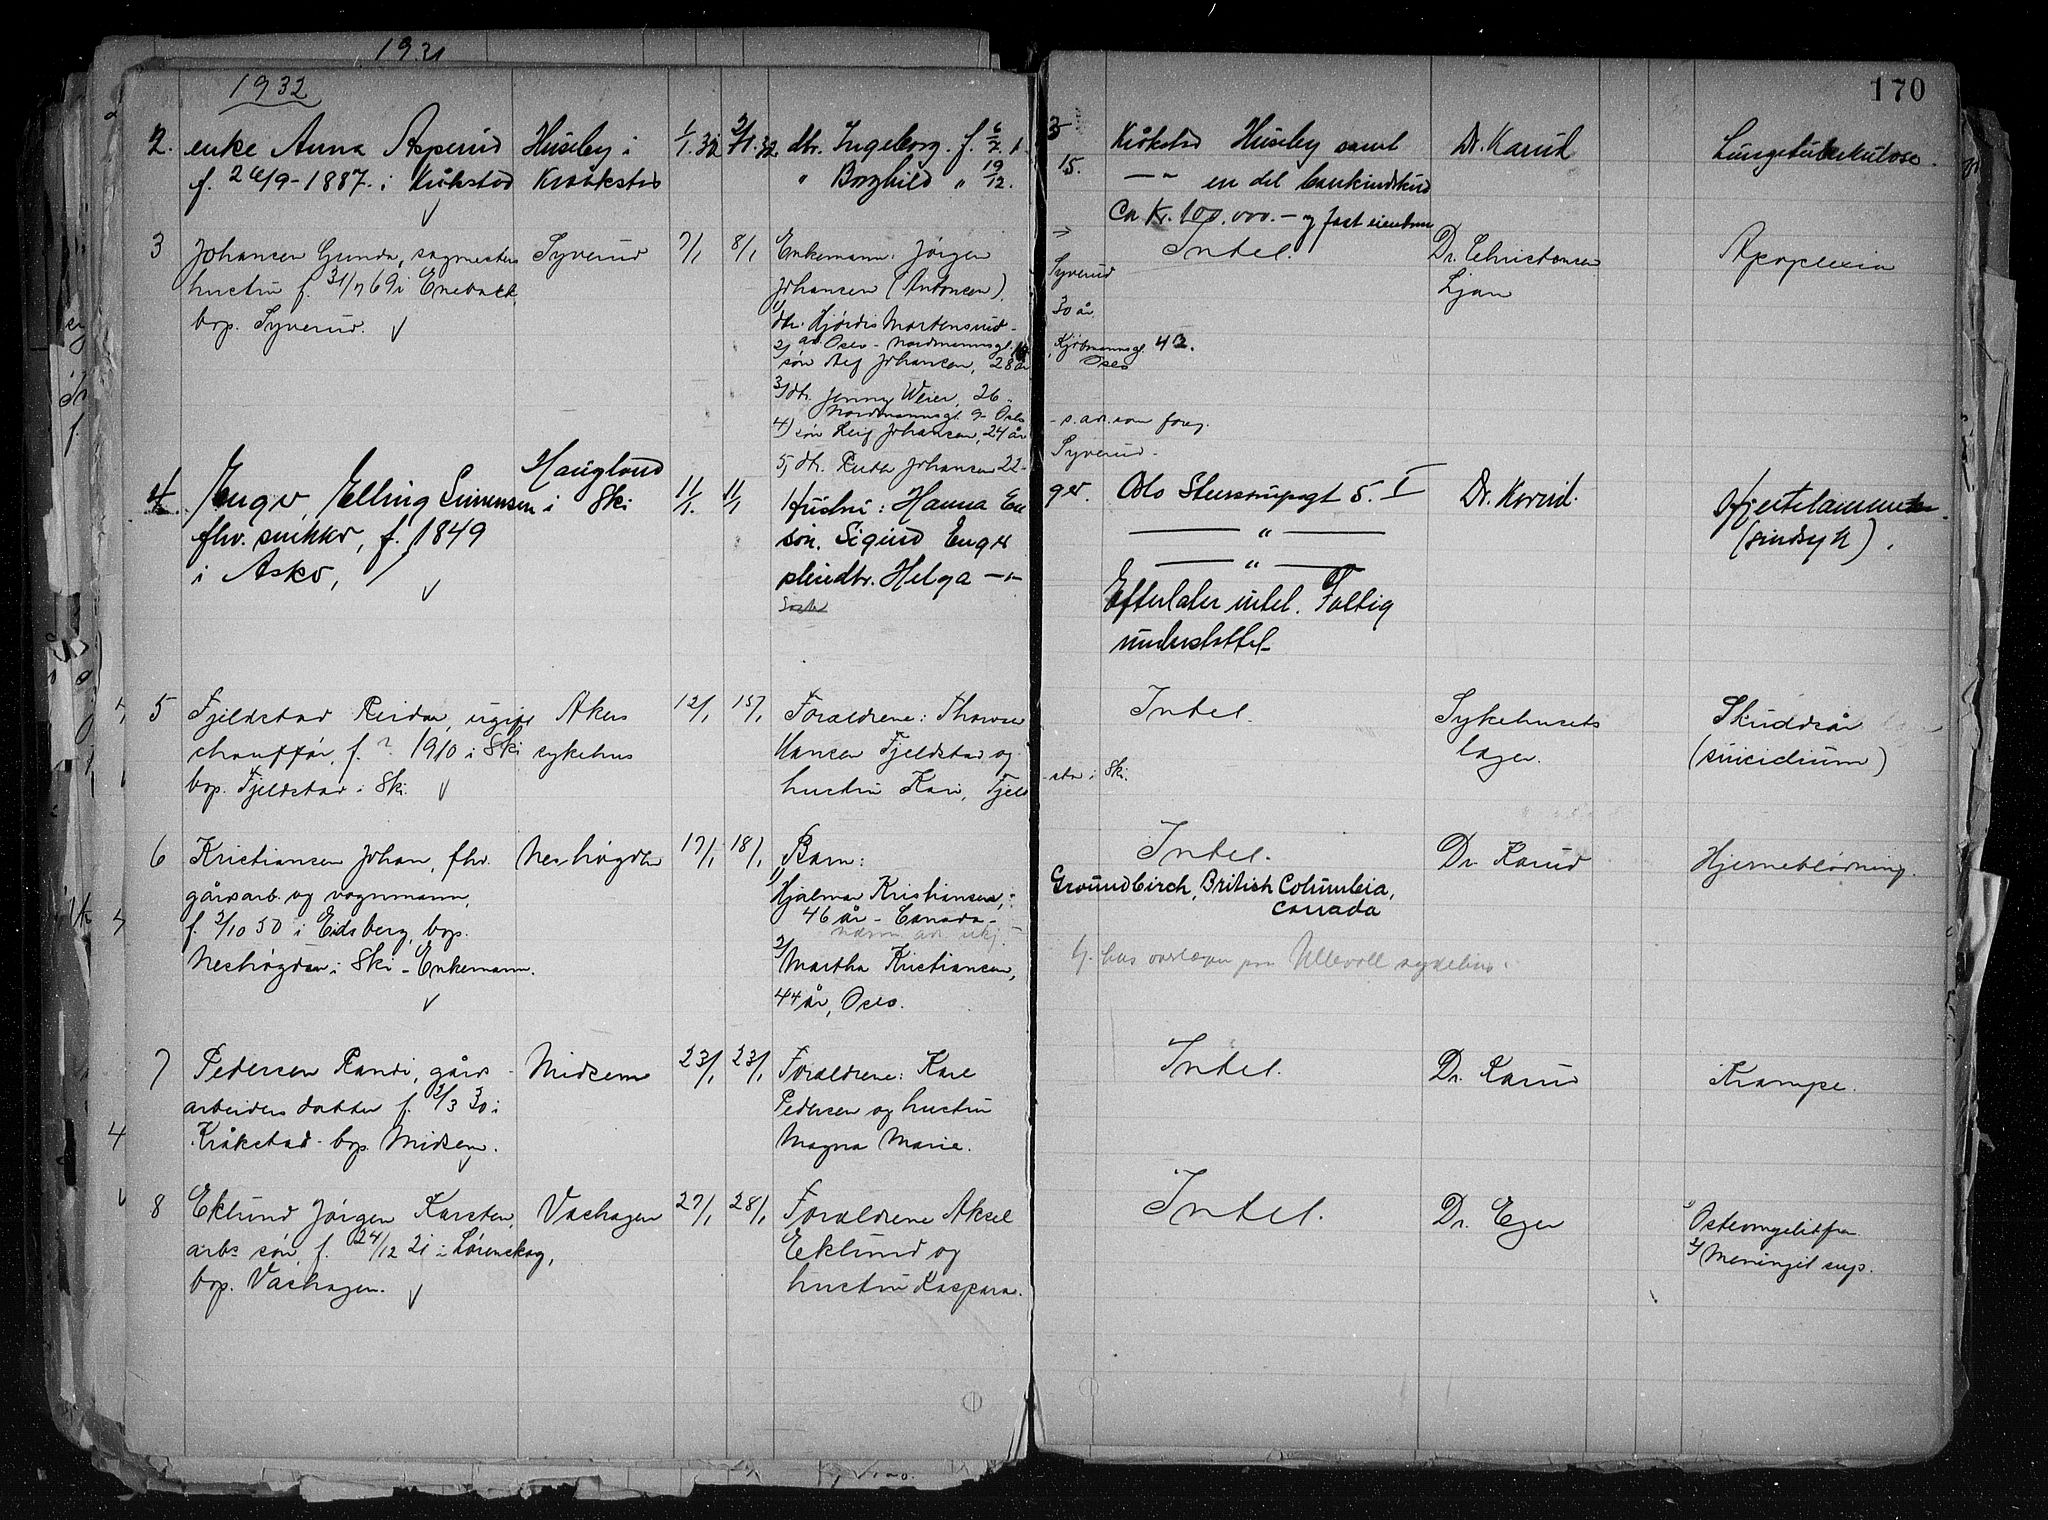 1931
1932
170
2. enke Anna Asperud Huseby i 1/1.32 2/1.32 dtr. Ingeborg. f. 6/7. Kråkstad Huseby samt Dr. Karud Lungetuberkulose.
f. 26/9-1887. i Kråkstad Kraakstad " Borghild " 19/12. 15. —"— en del bankindskud
Ca Kr. 100.000.- og fast eiendom
3 Johansen Gunda, sagmesters Syverud 7/1 8/1 Enkemann: Jørgen Intet. Dr. Christensen Apoplexia
hustru f. 31/7 69 i Enebakk, Johansen (Antonsen), Syverud Ljan
bop. Syverud. 1) dtr. Hjørdis Martensrud - 30 år
ad. Oslo - Nordmannsgt.
2) søn Alf Johansen, 28 år 42. Oslo
3) dtr. Jenny Weier, 26 "
Nordmannsgt. 9 - Oslo - s. ad. som foreg.
4) søn Leif Johansen, 24 år Syverud.
5) dtr. Ruth Johansen 22 -
4. Enger, Elling Simensen Haugland i Ski 11/1. 11/1 Hustru: Hanna En ger. Oslo 5. I Dr. Karud. Hjertelammelse
fhv. snikker, f. 1849 søn. Sigurd Enger —"— (sindsyk).
i Asker, pleiedtr. Helga —"— —"—
Efterlater intet. Fattig
understøttet
5 Fjeldstad Reidar, ugift Akers 12/1 15/1 Foreldrene: Intet. Sykehusets Skuddsår
chauffør, f. ? 1910 i Ski sykehus Hansen Fjeldstad og læger. (suicidium)
bop. Fjeldstad i Ski. hustru Kari, Fjeld stad i Ski.
6 Kristiansen Johan, fhv. Neshøgda 17/1 18/1 Barn: Intet. Dr. Karud Hjerneblødning.
gårdsarb. og vognmann, 1) Hjalmar Kristiansen, Groundbirch, British Columbia,
f. 2/10 50 i Eidsberg, bop. 46 år - Canada - Canada
Neshøgda i Ski - Enkemann. nærm. ad. ukj.
2) Martha Kristiansen, hos overlægen paa Ullevoll sykehus.
44 år, Oslo.
7 Pedersen Randi, gårds- Midsem 23/1 23/1 Foreldrene: Kåre Intet. Dr. Karud Krampe.
arbeiders datter f. 2/3 30 i Pedersen og hustru
Kråkstad - bop. Midsem. Magna Marie.
8 Eklund Jørgen Karsten, Vashagen 27/1 28/1 Foreldrene Aksel Intet. Dr. Eger 1) Osteomyelit
arb.s søn, f. 24/12 21 i Lørenskog, Eklund og 2) Meningit sup.
bop. Vashagen. hustru Kaspara.